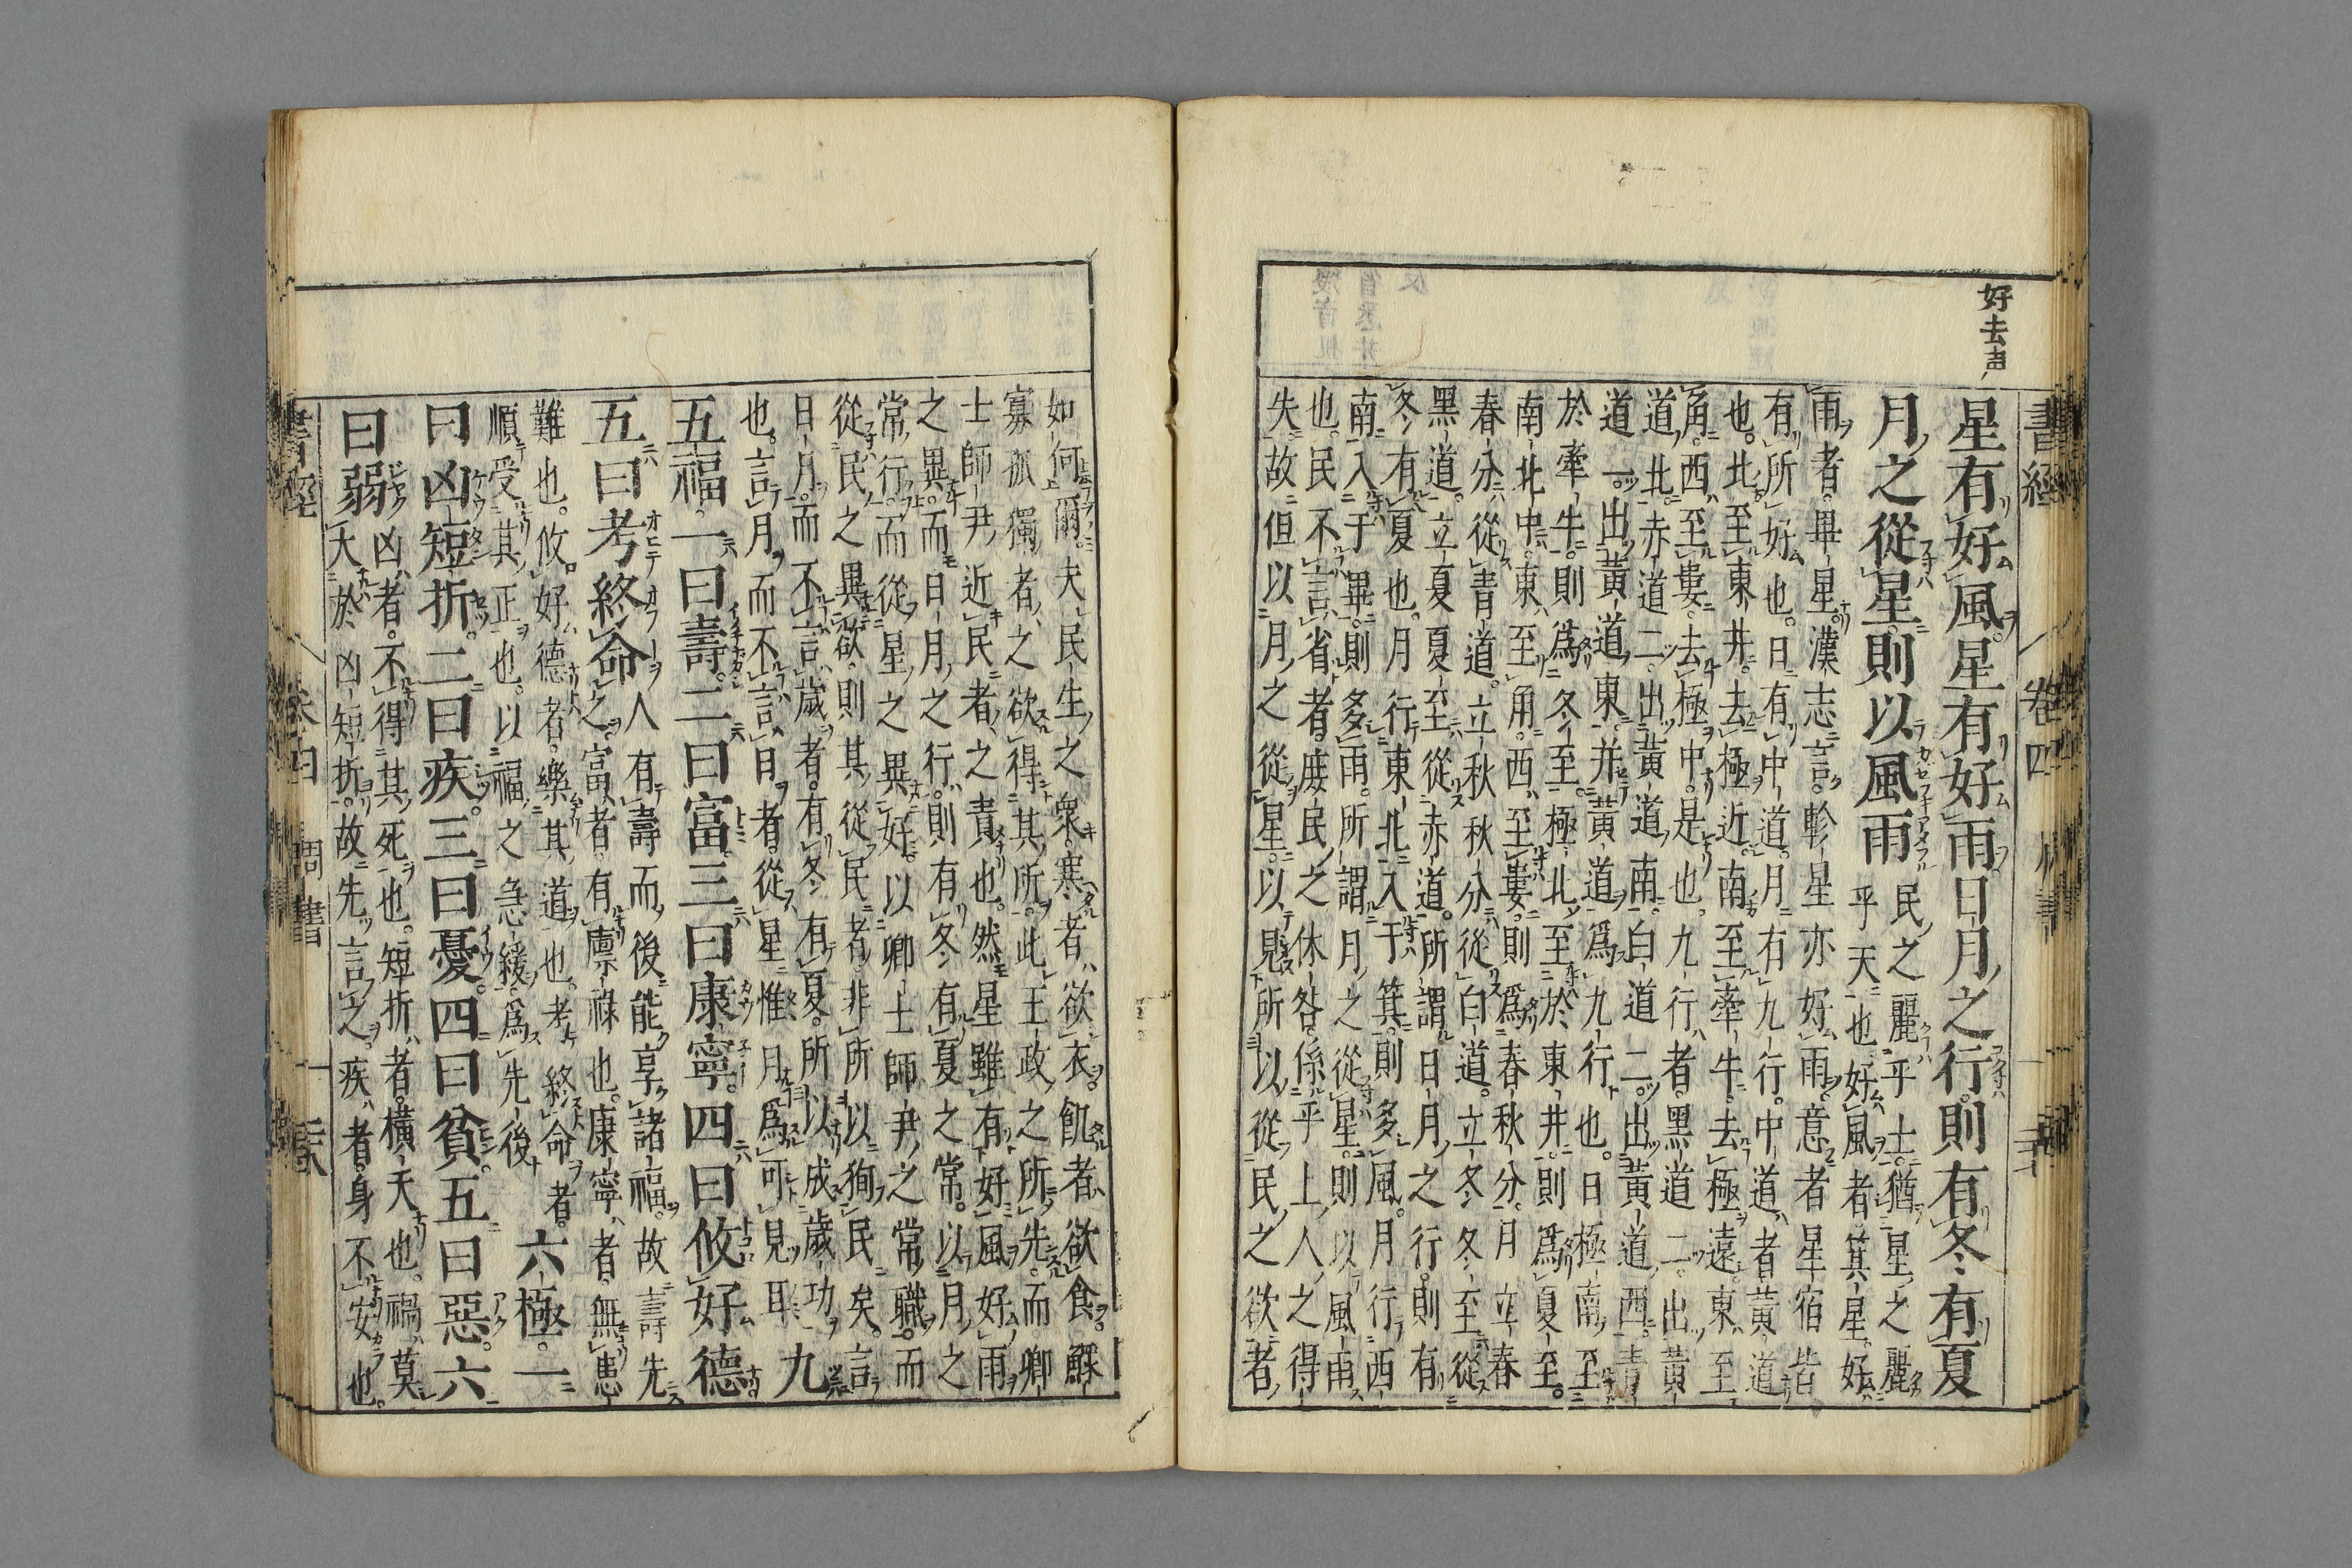 好去声
書經 卷四
星有好風星有好雨日月之行則有冬有夏
月之從星則以風雨
民之麗乎土猶星之麗
乎天也好風者箕星好
雨者畢星漢志言軫星亦好雨意者星宿皆
有所好也日有中道月有九行中道者黃道
也北至東井去極近南至牽牛去極遠東至
角西至婁去極中是也九行者黑道二出黃
道北赤道二出黃道南白道二出黃道西青
道二出黃道東并黃道爲九行也日極南至
於牽牛則爲冬至極北至於東井則爲夏至
南北中東至角西至婁則爲春秋分月立春
春分從青道立秋秋分從白道立冬冬至從
黑道立夏夏至從赤道所謂日月之行則有
冬有夏也月行東北入于箕則多風月行西
南入于畢則多雨所謂月之從星則以風雨
也民不言省者庶民之休咎係乎上人之得
失故但以月之從星以見所以從民之欲者
如何爾夫民生之衆寒者欲衣飢者欲食鰥
寡孤獨者之欲得其所此王政之所先而卿
士師尹近民者之責也然星雖有好風好雨
之異而日月之行則有冬有夏之常以月之
常行而從星之異好以卿士師尹之常職而
從民之異欲則其從民者非所以狥民矣言
日月而不言歲者有冬有夏所以成歲功
也言月而不言日者從星惟月爲可見耳
九
五福一曰壽二曰富三曰康寧四曰攸好德
五曰考終命
人有壽而後能享諸福故壽先
之富者有廩祿也康寧者無患
難也攸好德者樂其道也考終命者
順受其正也以福之急緩爲先後
六極一
曰凶短折二曰疾三曰憂四曰貧五曰惡六
曰弱
凶者不得其死也短折者橫夭也禍莫
大於凶短折故先言之疾者身不安也
書經 卷四 周書